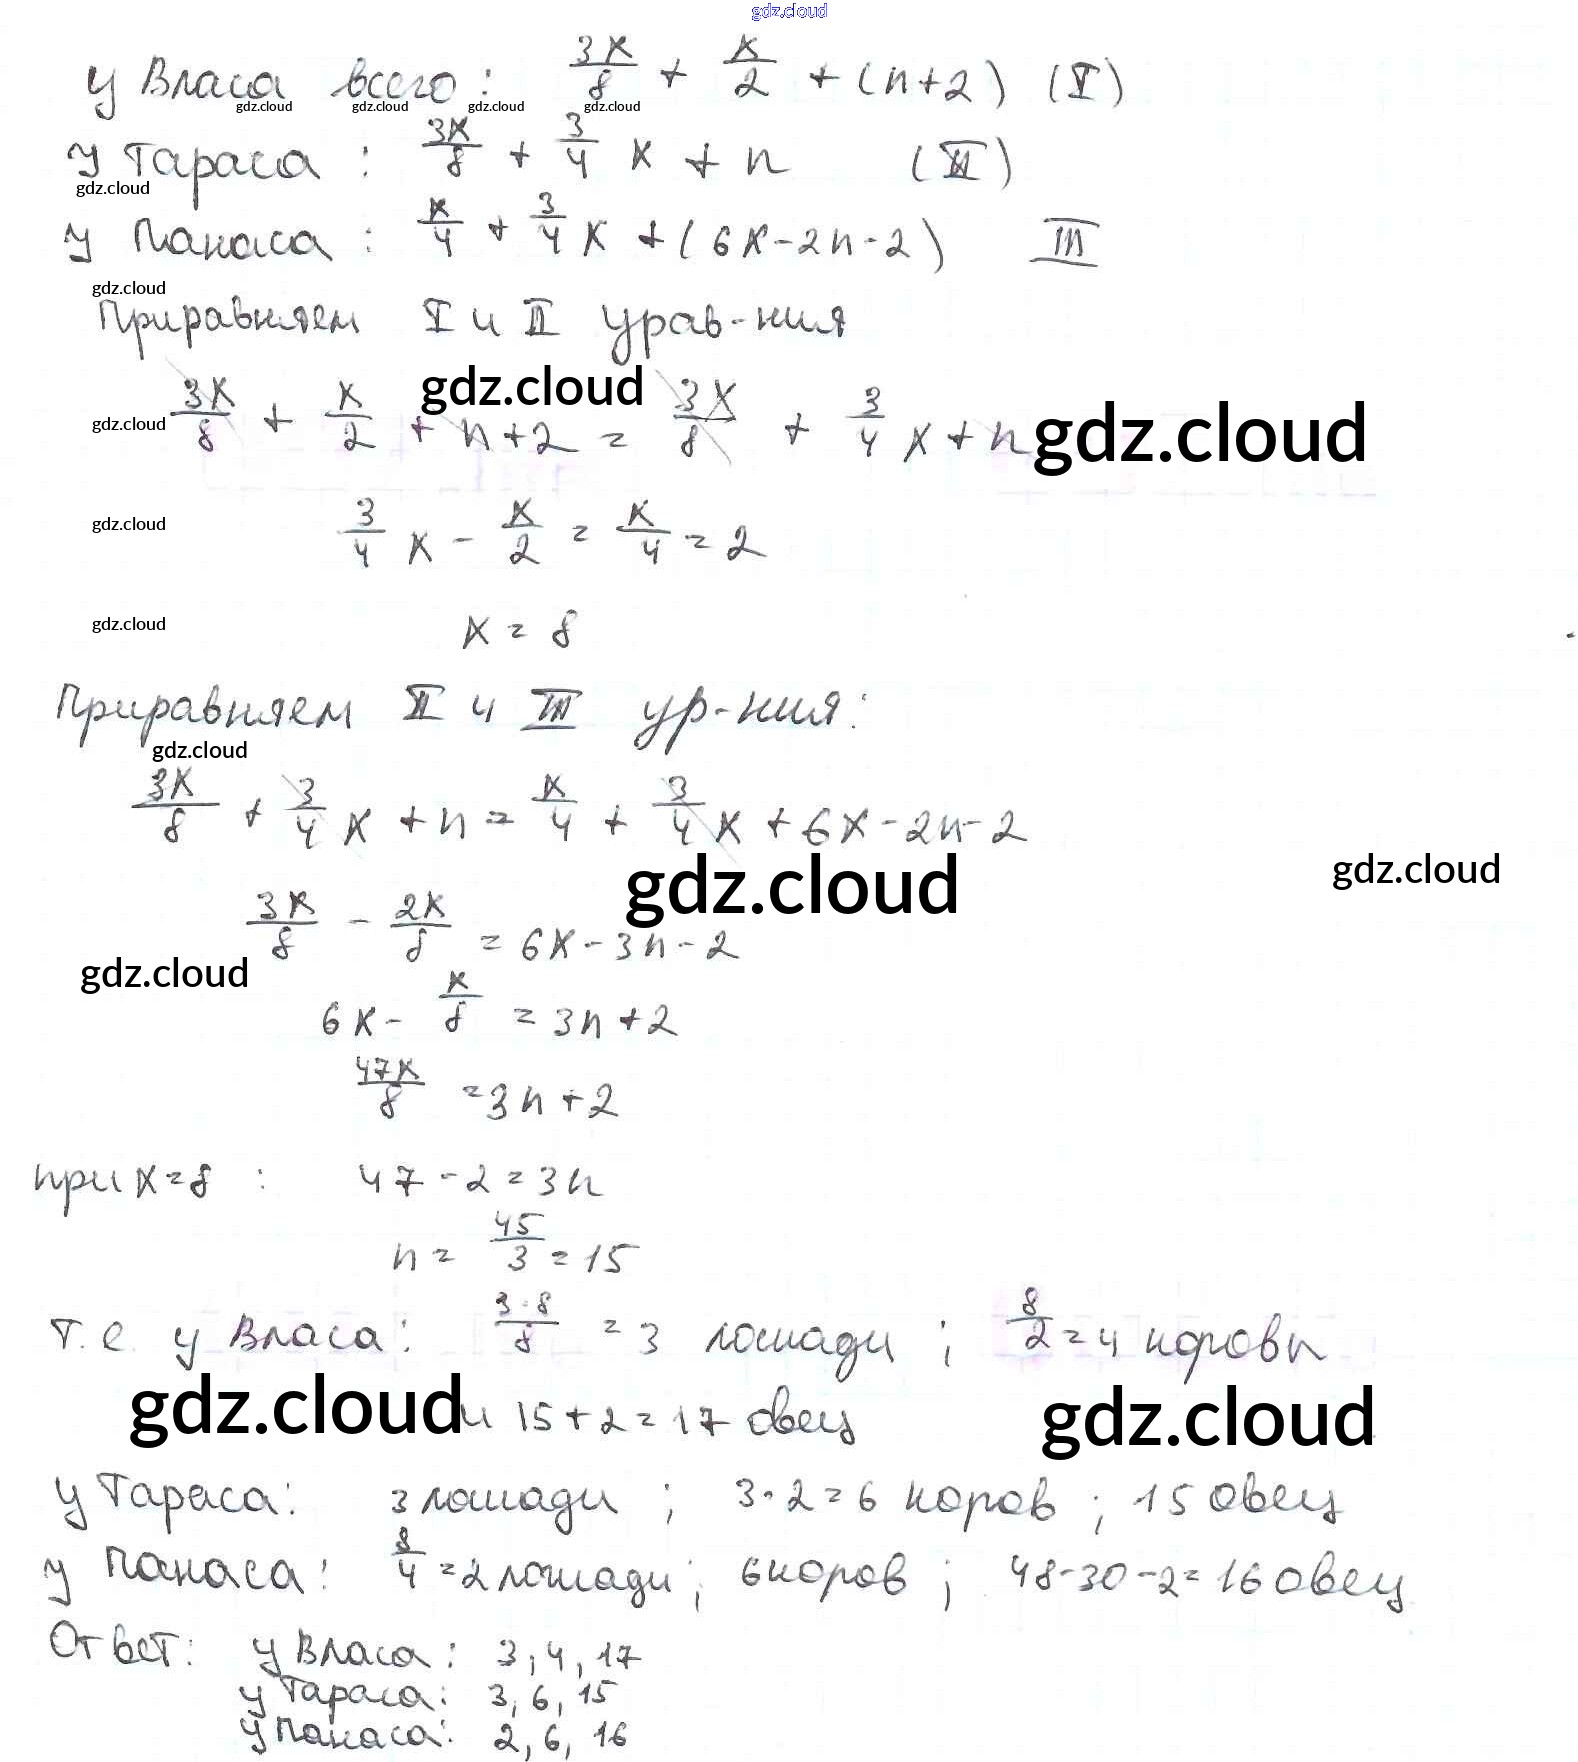 gdz.cloud
у Власа всего: 3x/8 + x/2 + (n+2) (I)
gdz.cloud gdz.cloud gdz.cloud gdz.cloud
у Тараса: 3x/8 + 3/4 x + n (II)
gdz.cloud
у Панаса: x/4 + 3/4 x + (6x-2n-2) III
gdz.cloud
Приравняем I и II урав-ния
gdz.cloud gdz.cloud
gdz.cloud 3x/8 + x/2 + n+2 = 3x/8 + 3/4 x + n
gdz.cloud 3/4 x - x/2 = x/4 = 2
gdz.cloud x = 8
Приравняем II и III ур-ния:
gdz.cloud
3x/8 + 3/4 x + n = x/4 + 3/4 x + 6x-2n-2
gdz.cloud gdz.cloud
3x/8 - 2x/8 = 6x-3n-2
gdz.cloud
6x - x/8 = 3n+2
47x/8 = 3n+2
при x=8 : 47-2=3n
n = 45/3 = 15
т.е. у Власа: 3·8/8 = 3 лошади ; 8/2=4 коровы
gdz.cloud и 15+2=17 овец gdz.cloud
у Тараса: 3 лошади ; 3·2=6 коров ; 15 овец
у Панаса: 8/4=2 лошади; 6 коров ; 48-30-2=16 овец
Ответ: у Власа: 3, 4, 17
у Тараса: 3, 6, 15
у Панаса: 2, 6, 16